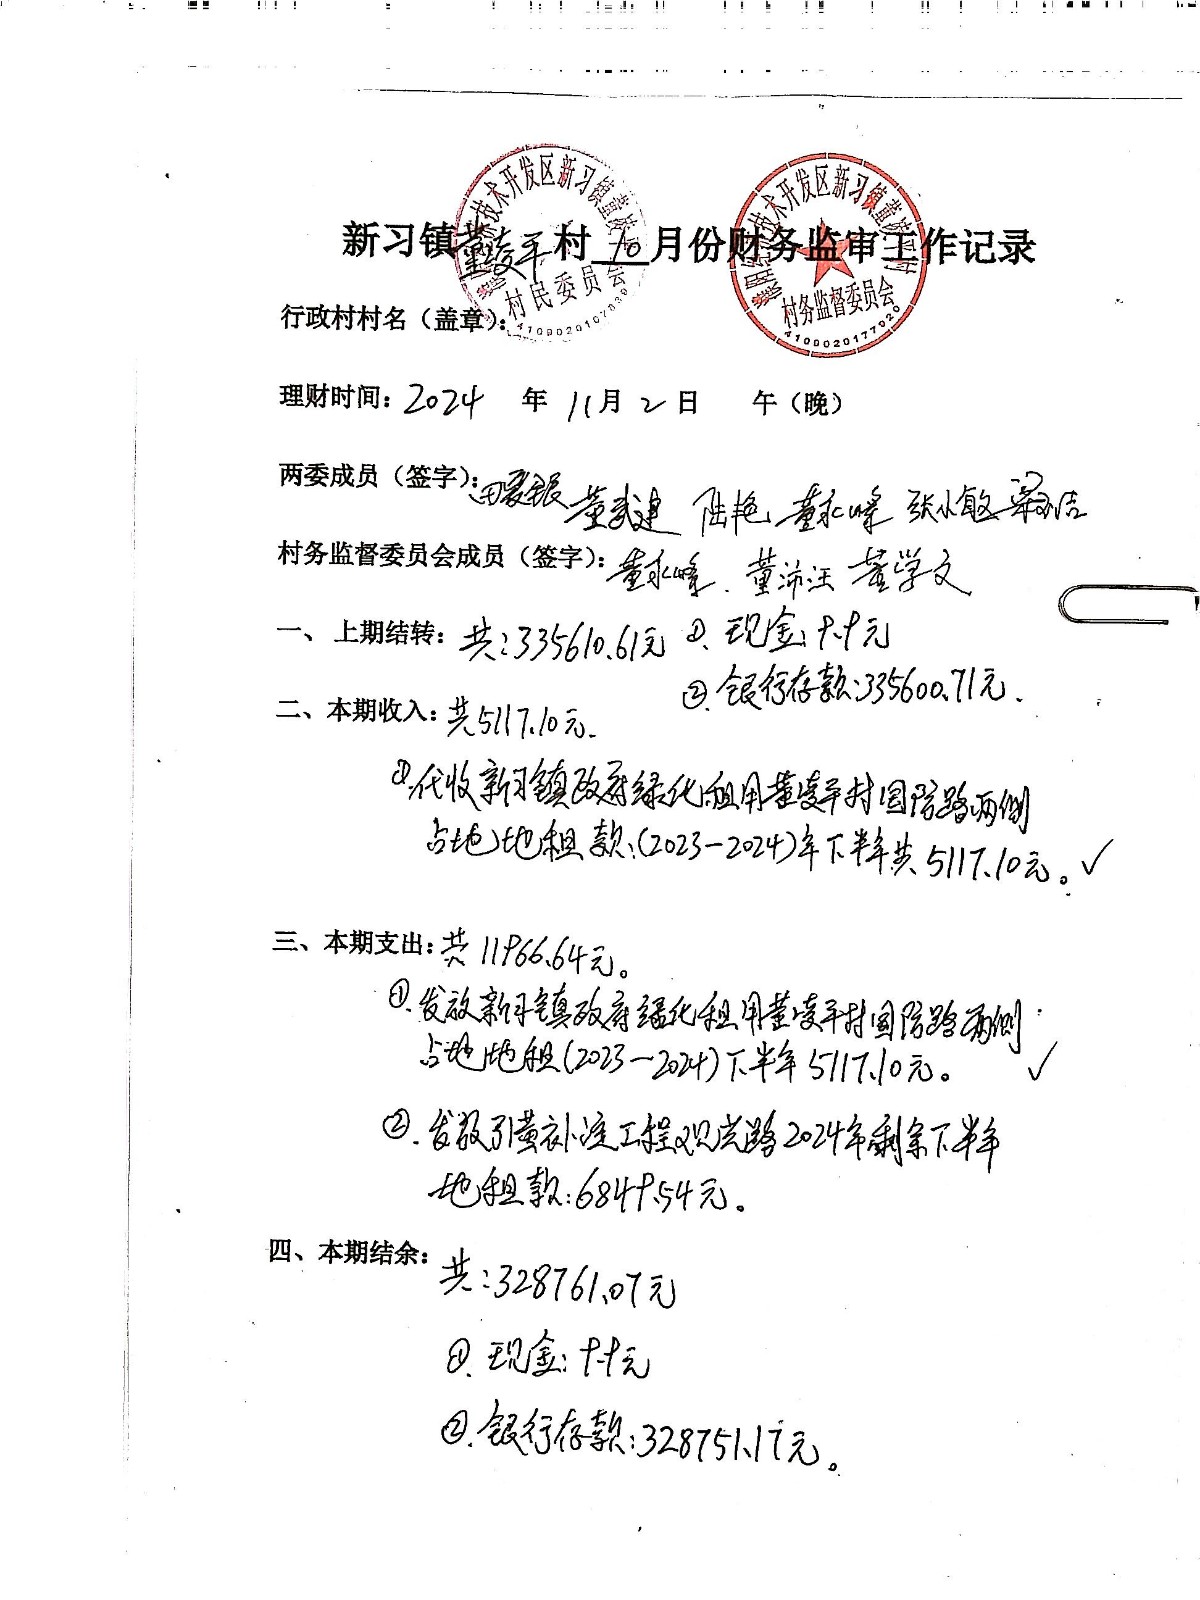 新习镇董凌平村 10 月份财务监审工作记录
村民委员会
4109020107039
村务监督委员会
4109020177020
行政村村名（盖章）:
理财时间: 2024 年 11月 2 日 午（晚）
两委成员（签字）: 董武建 陆艳 董永峰 张小敏
村务监督委员会成员（签字）: 董永峰、董沛汪 董学文
一、上期结转: 共:335610.61元 ①、现金:9.9元
②、银行存款:335600.71元.
二、本期收入: 共5117.10元.
①代收新习镇政府绿化租用董凌平村国防路两侧
占地地租款:(2023-2024)年下半年共5117.10元。✓
三、本期支出: 共11966.64元。
①.发放新习镇政府绿化租用董凌平村国防路两侧
占地地租(2023-2024)下半年5117.10元。 ✓
②.发放引黄补淀工程观光路2024年剩余下半年
地租款:6849.54元。
四、本期结余: 共:328761.07元
①.现金:9.9元
②.银行存款:328751.17元。